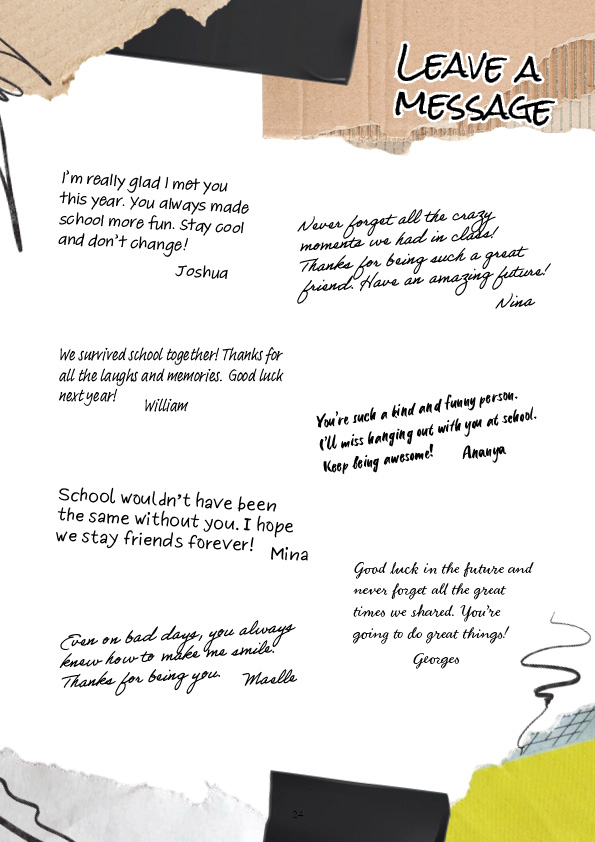 LEAVE A
MESSAGE
I'm really glad I met you
this year. You always made
school more fun. Stay cool
and don't change!
Joshua
Never forget all the crazy
moments we had in class!
Thanks for being such a great
friend. Have an amazing future!
Nina
We survived school together! Thanks for
all the laughs and memories. Good luck
next year!
William
You're such a kind and funny person.
I'll miss hanging out with you at school.
Keep being awesome!
Ananya
School wouldn't have been
the same without you. I hope
we stay friends forever!
Mina
Good luck in the future and
never forget all the great
times we shared. You're
going to do great things!
Georges
Even on bad days, you always
knew how to make me smile.
Thanks for being you.
Maelle
24